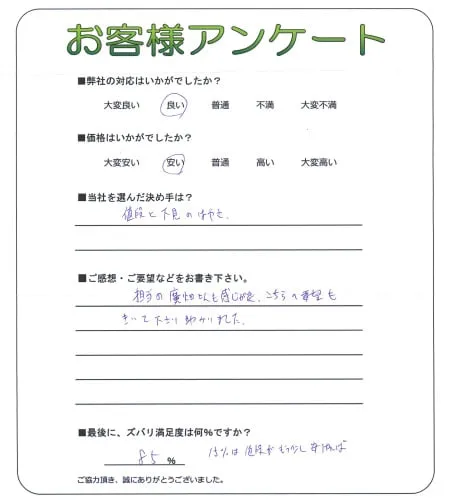 お客様アンケート
■弊社の対応はいかがでしたか？
大変良い 良い 普通 不満 大変不満
■価格はいかがでしたか？
大変安い 安い 普通 高い 大変高い
■当社を選んだ決め手は？
値段と下見のはやさ。
■ご感想・ご要望などをお書き下さい。
担当の廣畑さんも感じが良く、こちらの希望も
きいて下さり助かりました。
■最後に、ズバリ満足度は何％ですか？
85 % 15%は値段がもう少し安ければ
ご協力頂き、誠にありがとうございました。